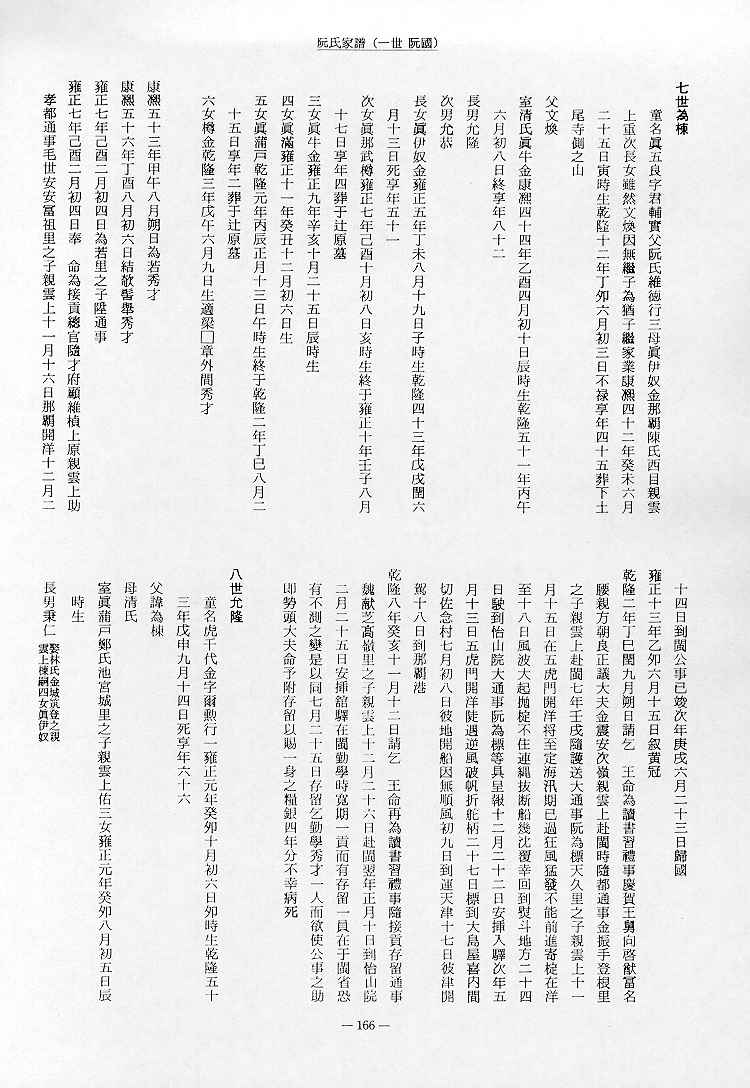 阮氏家譜（一世 阮國）
七世為棟
童名眞五良字君輔實父阮氏維德行三母眞伊奴金那覇陳氏西目親雲
上重次長女雖然文煥因無繼子為猶子繼家業康熙四十二年癸未六月
二十五日寅時生乾隆十二年丁卯六月初三日不禄享年四十五葬下土
尾寺側之山
父文煥
室清氏眞牛金康熙四十四年乙酉四月初十日辰時生乾隆五十一年丙午
六月初八日終享年八十二
長男允隆
次男允恭
長女眞伊奴金雍正五年丁未八月十九日子時生乾隆四十三年戊戌閏六
月十三日死享年五十一
次女眞那武樽雍正七年己酉十月初八日亥時生終于雍正十年壬子八月
十七日享年四葬于辻原墓
三女眞牛金雍正九年辛亥十月二十五日辰時生
四女眞滿雍正十一年癸丑十二月初六日生
五女眞蒲戸乾隆元年丙辰正月十三日午時生終于乾隆二年丁巳八月二
十五日享年二葬于辻原墓
六女樽金乾隆三年戊午六月九日生適梁□章外間秀才
康熙五十三年甲午八月朔日為若秀才
康熙五十六年丁酉八月初六日結敬髻舉秀才
雍正七年己酉二月初四日為若里之子陞通事
雍正七年己酉二月初四日奉　命為接貢總官隨才府顧維楨上原親雲上助
孝都通事毛世安安冨祖里之子親雲上十一月十六日那覇開洋十二月二
十四日到閩公事已竣次年庚戌六月二十三日歸國
雍正十三年乙卯六月十五日叙黄冠
乾隆二年丁巳閏九月朔日請乞　王命為讀書習禮事慶賀王舅向啓猷冨名
腰親方朝良正議大夫金震安次嶺親雲上赴閩時隨都通事金振手登根里
之子親雲上赴閩七年壬戌隨護送大通事阮為標天久里之子親雲上十一
月十五日在五虎門開洋将至定海汛期已過狂風猛發不能前進寄椗在洋
至十八日風波大起拋椗不住連縄抜断船幾沈覆幸回到熨斗地方二十四
日駛到怡山院大通事阮為標等具呈報十二月二十二日安挿入驛次年五
月十三日五虎門開洋陡遇逆風破帆折舵柄二十七日標到大島屋喜内間
切佐念村七月初八日彼地開船因無順風初九日到運天津十七日彼津開
駕十八日到那覇港
乾隆八年癸亥十一月十二日請乞　王命再為讀書習禮事隨接貢存留通事
魏献芝高嶺里之子親雲上十二月二十六日赴閩翌年正月十日到怡山院
二月二十五日安挿舘驛在閩勤學時寛期一貢而有存留一員在于閩省恐
有不測之變是以同七月二十五日存留乞勤學秀才一人而欲使公事之助
即勢頭大夫命予附存留以賜一身之糧銀四年分不幸病死
八世允隆
童名虎千代金字爾勲行一雍正元年癸卯十月初六日卯時生乾隆五十
三年戊申九月十四日死享年六十六
父諱為棟
母清氏
室眞蒲戸鄭氏池宮城里之子親雲上佑三女雍正元年癸卯八月初五日辰
時生
長男秉仁　娶林氏金城筑登之親
雲上棟嗣四女眞伊奴
— 166 —